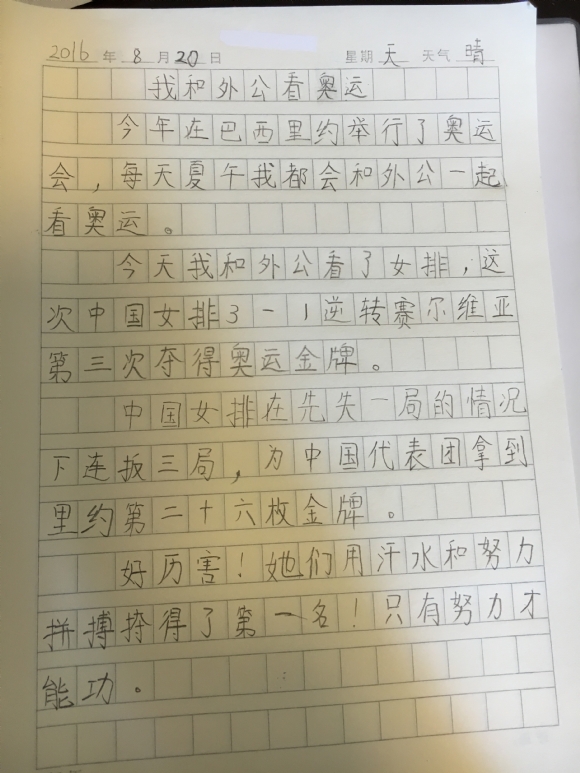 2016 年 8 月 20 日 星期 天 天气 晴
我和外公看奥运
今年在巴西里约举行了奥运
会，每天夏午我都会和外公一起
看奥运。
今天我和外公看了女排，这
次中国女排3-1逆转赛尔维亚
第三次夺得奥运金牌。
中国女排在先失一局的情况
下连扳三局，为中国代表团拿到
里约第二十六枚金牌。
好厉害！她们用汗水和努力
拼搏持得了第一名！只有努力才
能功。